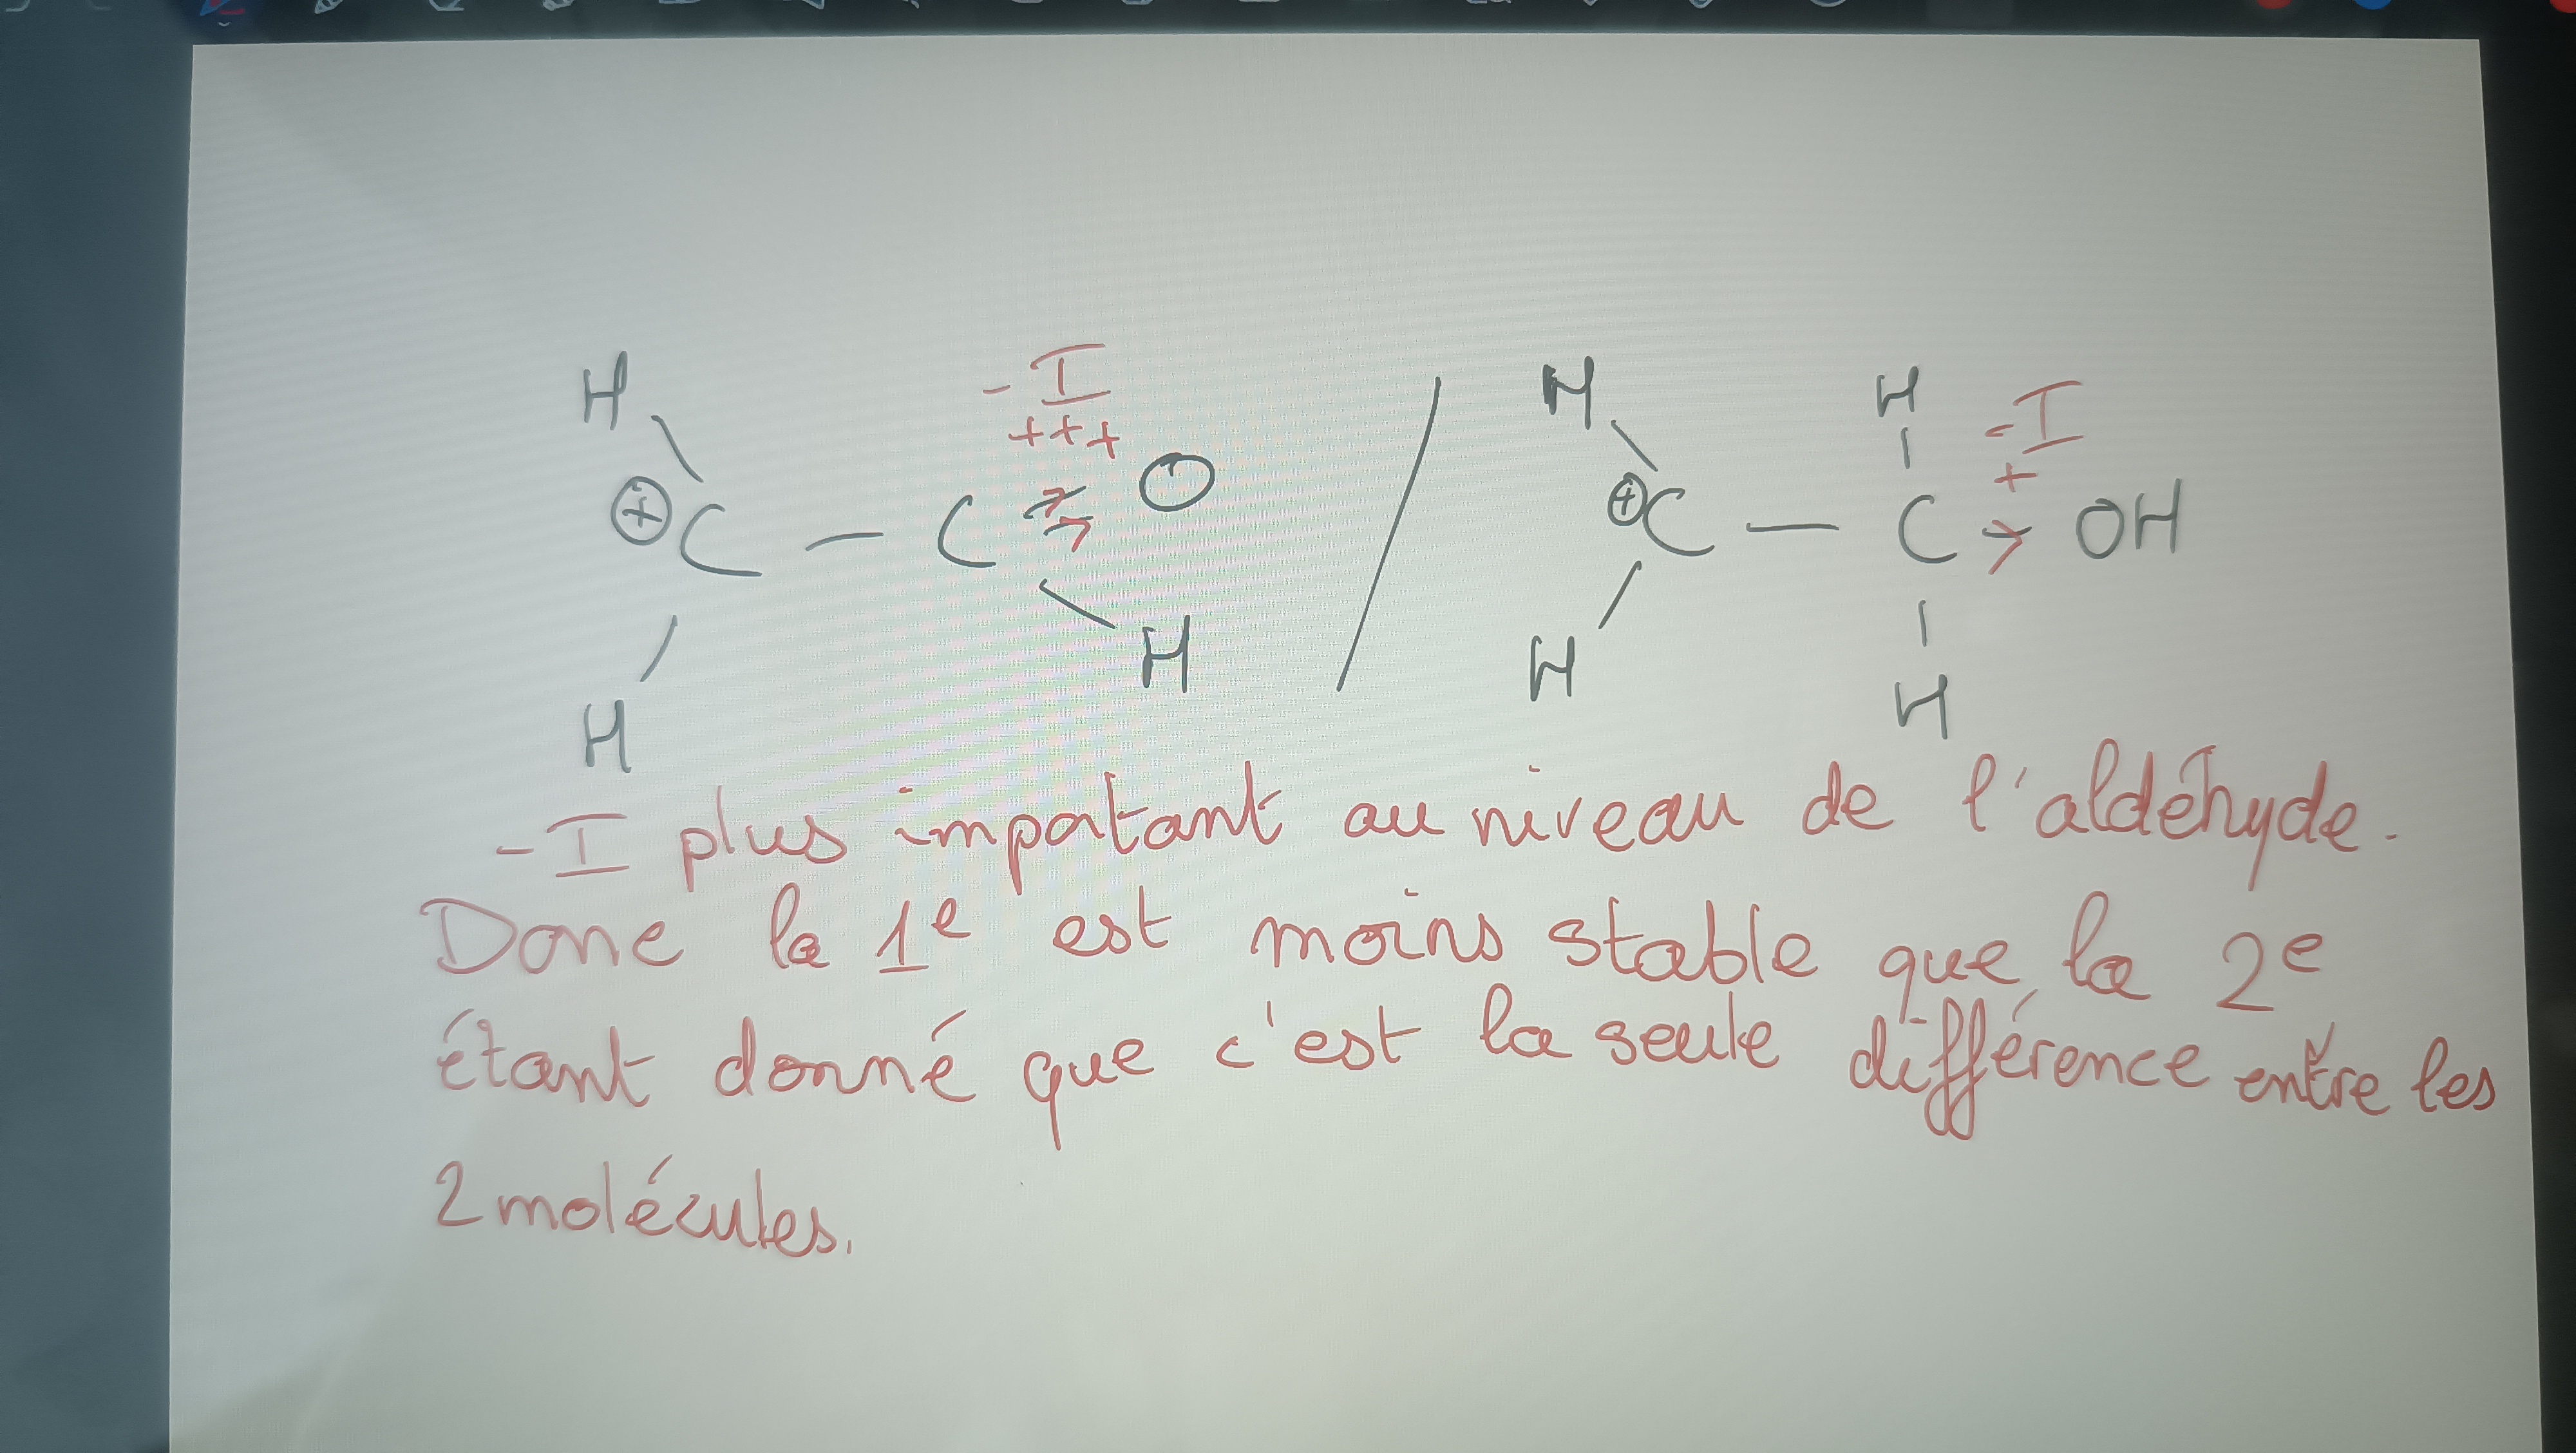 H -I H H -I
+++ +
⊕C - C O ⊕C - C OH
H H H H
-I plus important au niveau de l'aldéhyde.
Donc la 1e est moins stable que la 2e
étant donné que c'est la seule différence entre les
2 molécules.